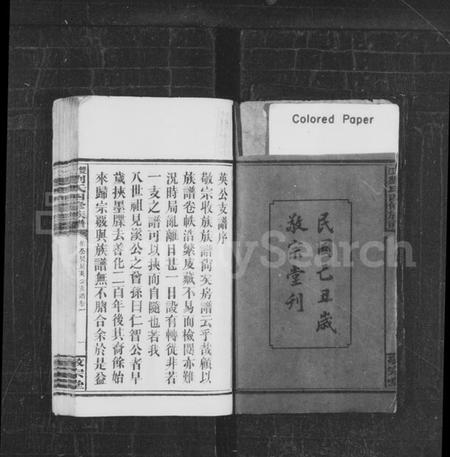 Colored Paper
民國己丑歲
敬宗堂刊
英公支譜序
敬宗收族族譜尚矣房譜云乎哉顧以
族譜卷帙浩繁庋藏不易而檢閱亦難
況時局亂離日甚一日設有轉徙非若
一支之譜可以挾而自隨也若我
八世祖見溪公之曾孫曰仁智公者早
歲挾墨牒去善化二百年後其裔餘始
來歸宗親與族譜無不脗合余於是益
敬宗堂